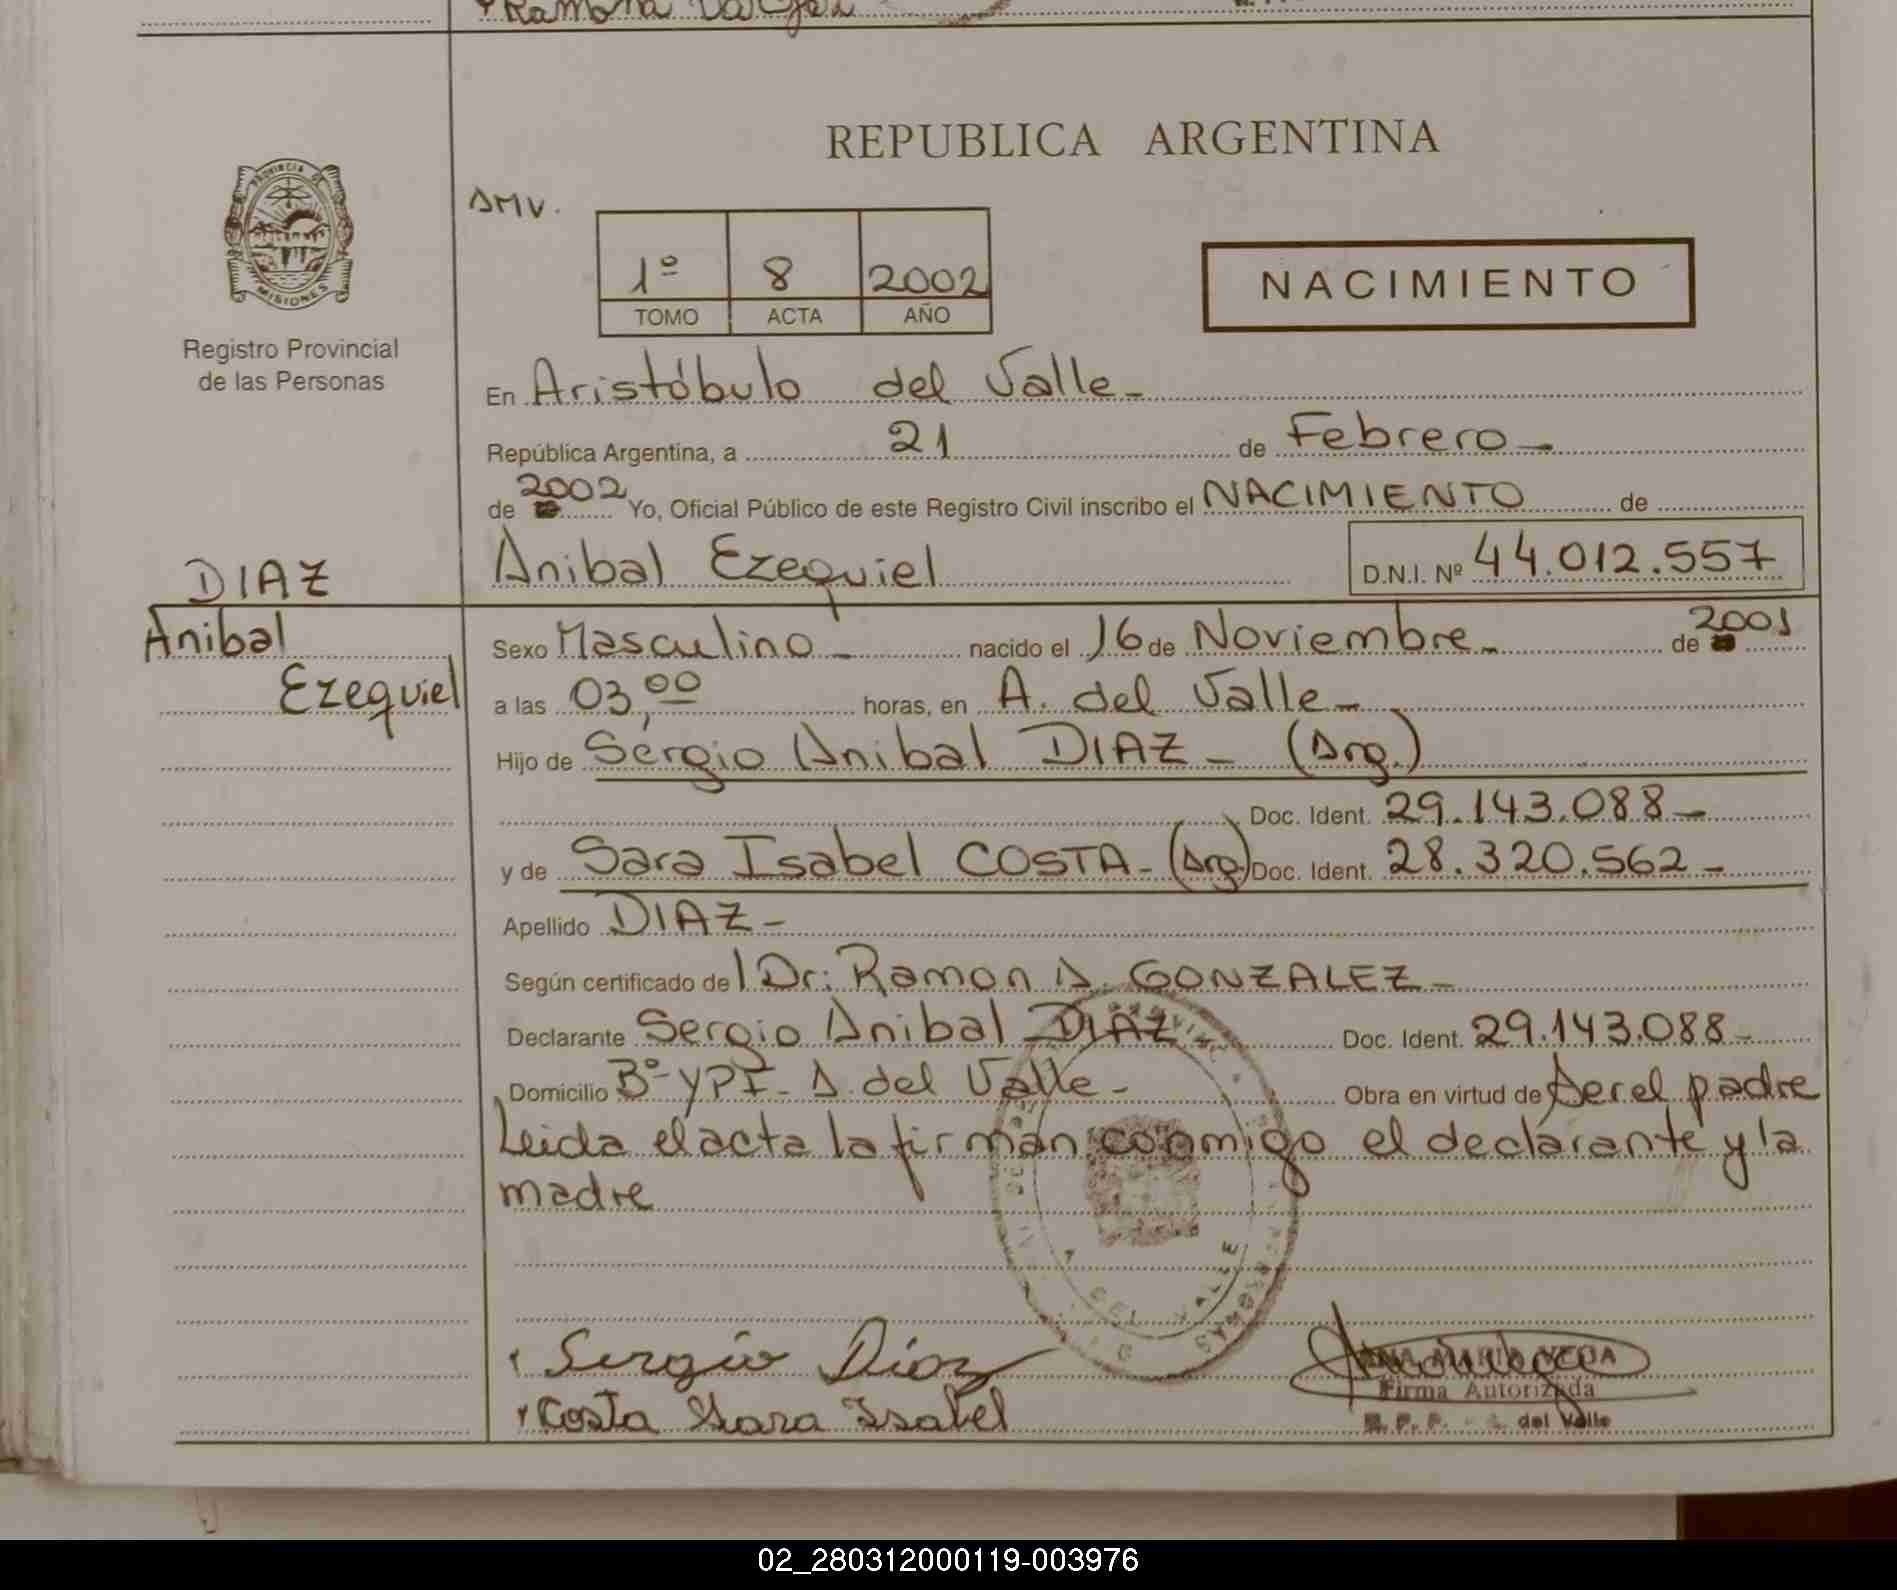 Ramona
REPUBLICA ARGENTINA
PROVINCIA DE
MISIONES
Registro Provincial
de las Personas
AMV.
1º 8 2002
TOMO ACTA AÑO
NACIMIENTO
En Aristóbulo del Valle-
República Argentina, a 21 de Febrero-
de 2002 Yo, Oficial Público de este Registro Civil inscribo el NACIMIENTO de
Anibal Ezequiel D.N.I. Nº 44.012.557
DIAZ
Anibal
Ezequiel
Sexo Masculino- nacido el 16 de Noviembre- de 2001
a las 03,00 horas, en A. del Valle-
Hijo de Sergio Anibal DIAZ- (Arg.)
Doc. Ident. 29.143.088-
y de Sara Isabel COSTA- (Arg.) Doc. Ident. 28.320.562-
Apellido DIAZ-
Según certificado de Dr: Ramon A. GONZALEZ-
Declarante Sergio Anibal DIAZ Doc. Ident. 29.143.088-
Domicilio Bº-YPF- A. del Valle- Obra en virtud de Ser el padre
Leida el acta la firman conmigo el declarante y la
madre
A. DEL VALLE
Sergio Díaz
Costa Sara Isabel
ANA MARIA VEGA
Firma Autorizada
R. P. P. - A. del Valle
02_280312000119-003976